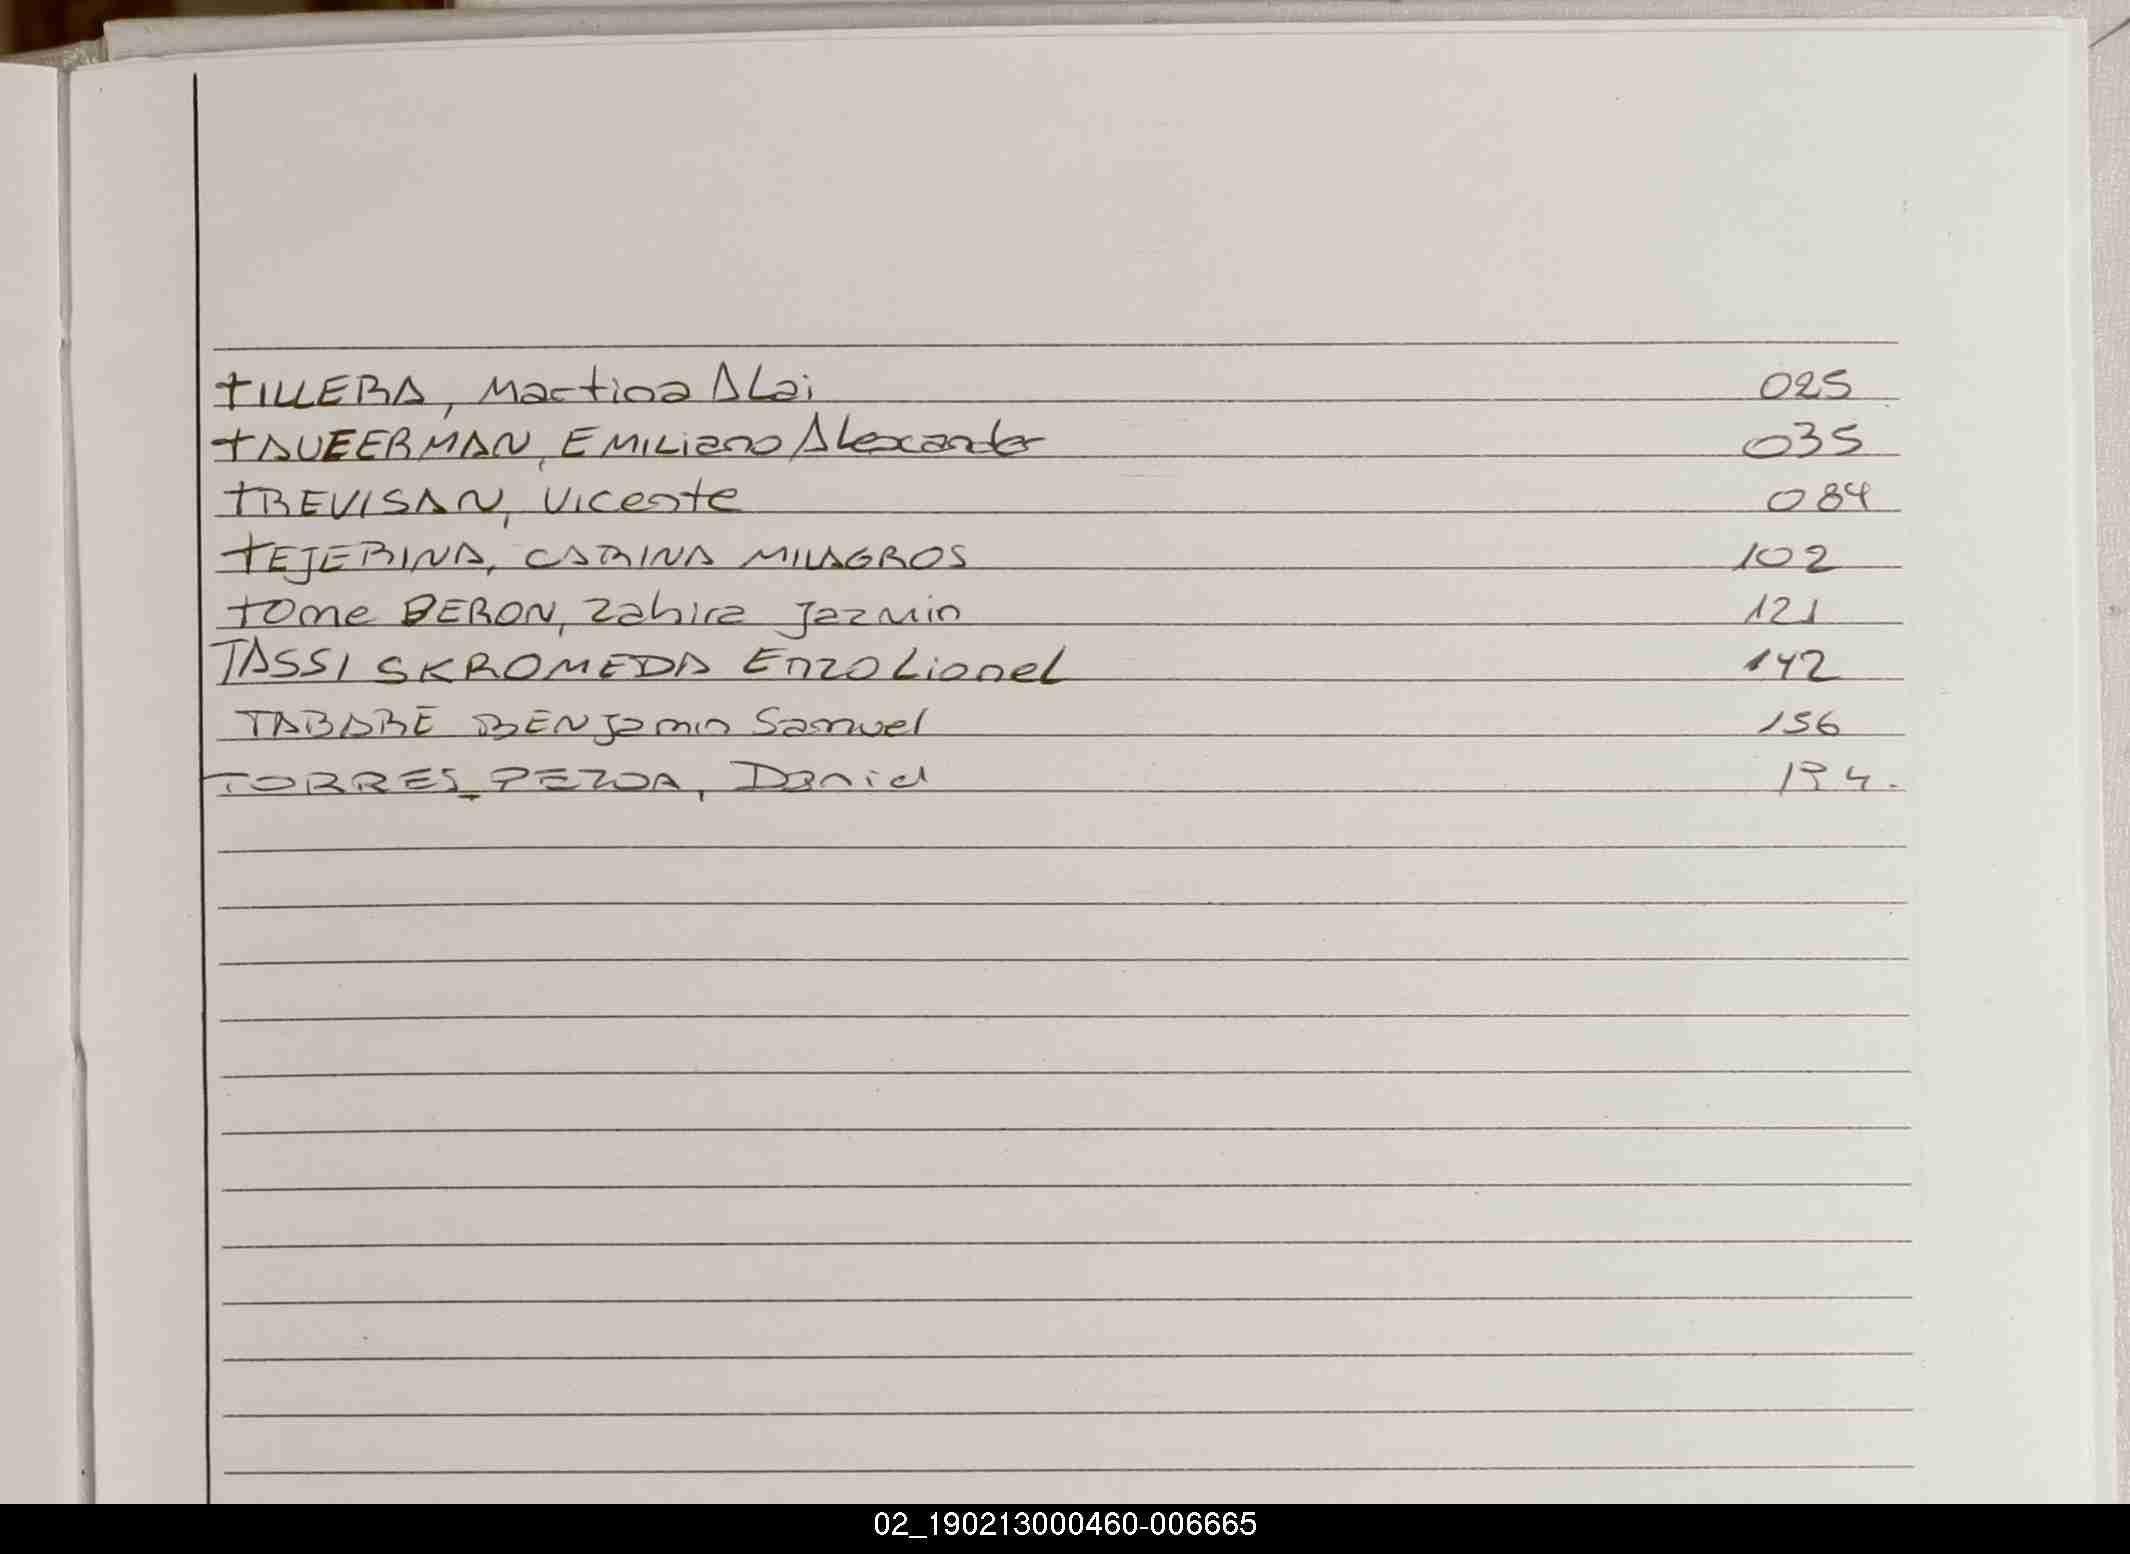 TILLERA, Martina Alai 025
TAVEERMAN, EMILiano Alexander 035
TREVISAN, Vicente 084
TEJERINA, CARINA MILAGROS 102
TOme BERON, Zahira Jazmin 121
TASSI SKROMEDA Enzo Lionel 142
TABARE BENJamin Samuel 156
TORRES PEZOA, Daniel 194.
02_190213000460-006665